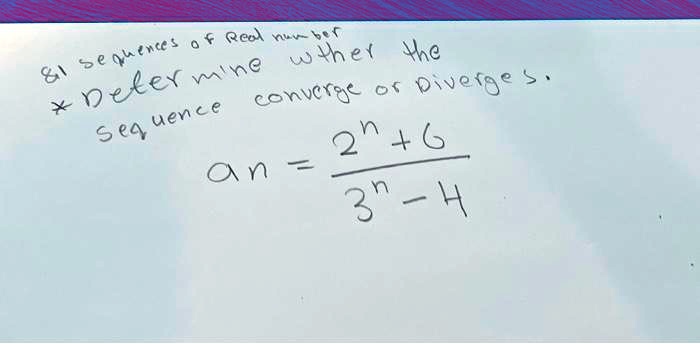 &1 sequences of Real number
* Determine wther the
sequence converge or Diverges.
an = 2^n + 6 / 3^n - 4